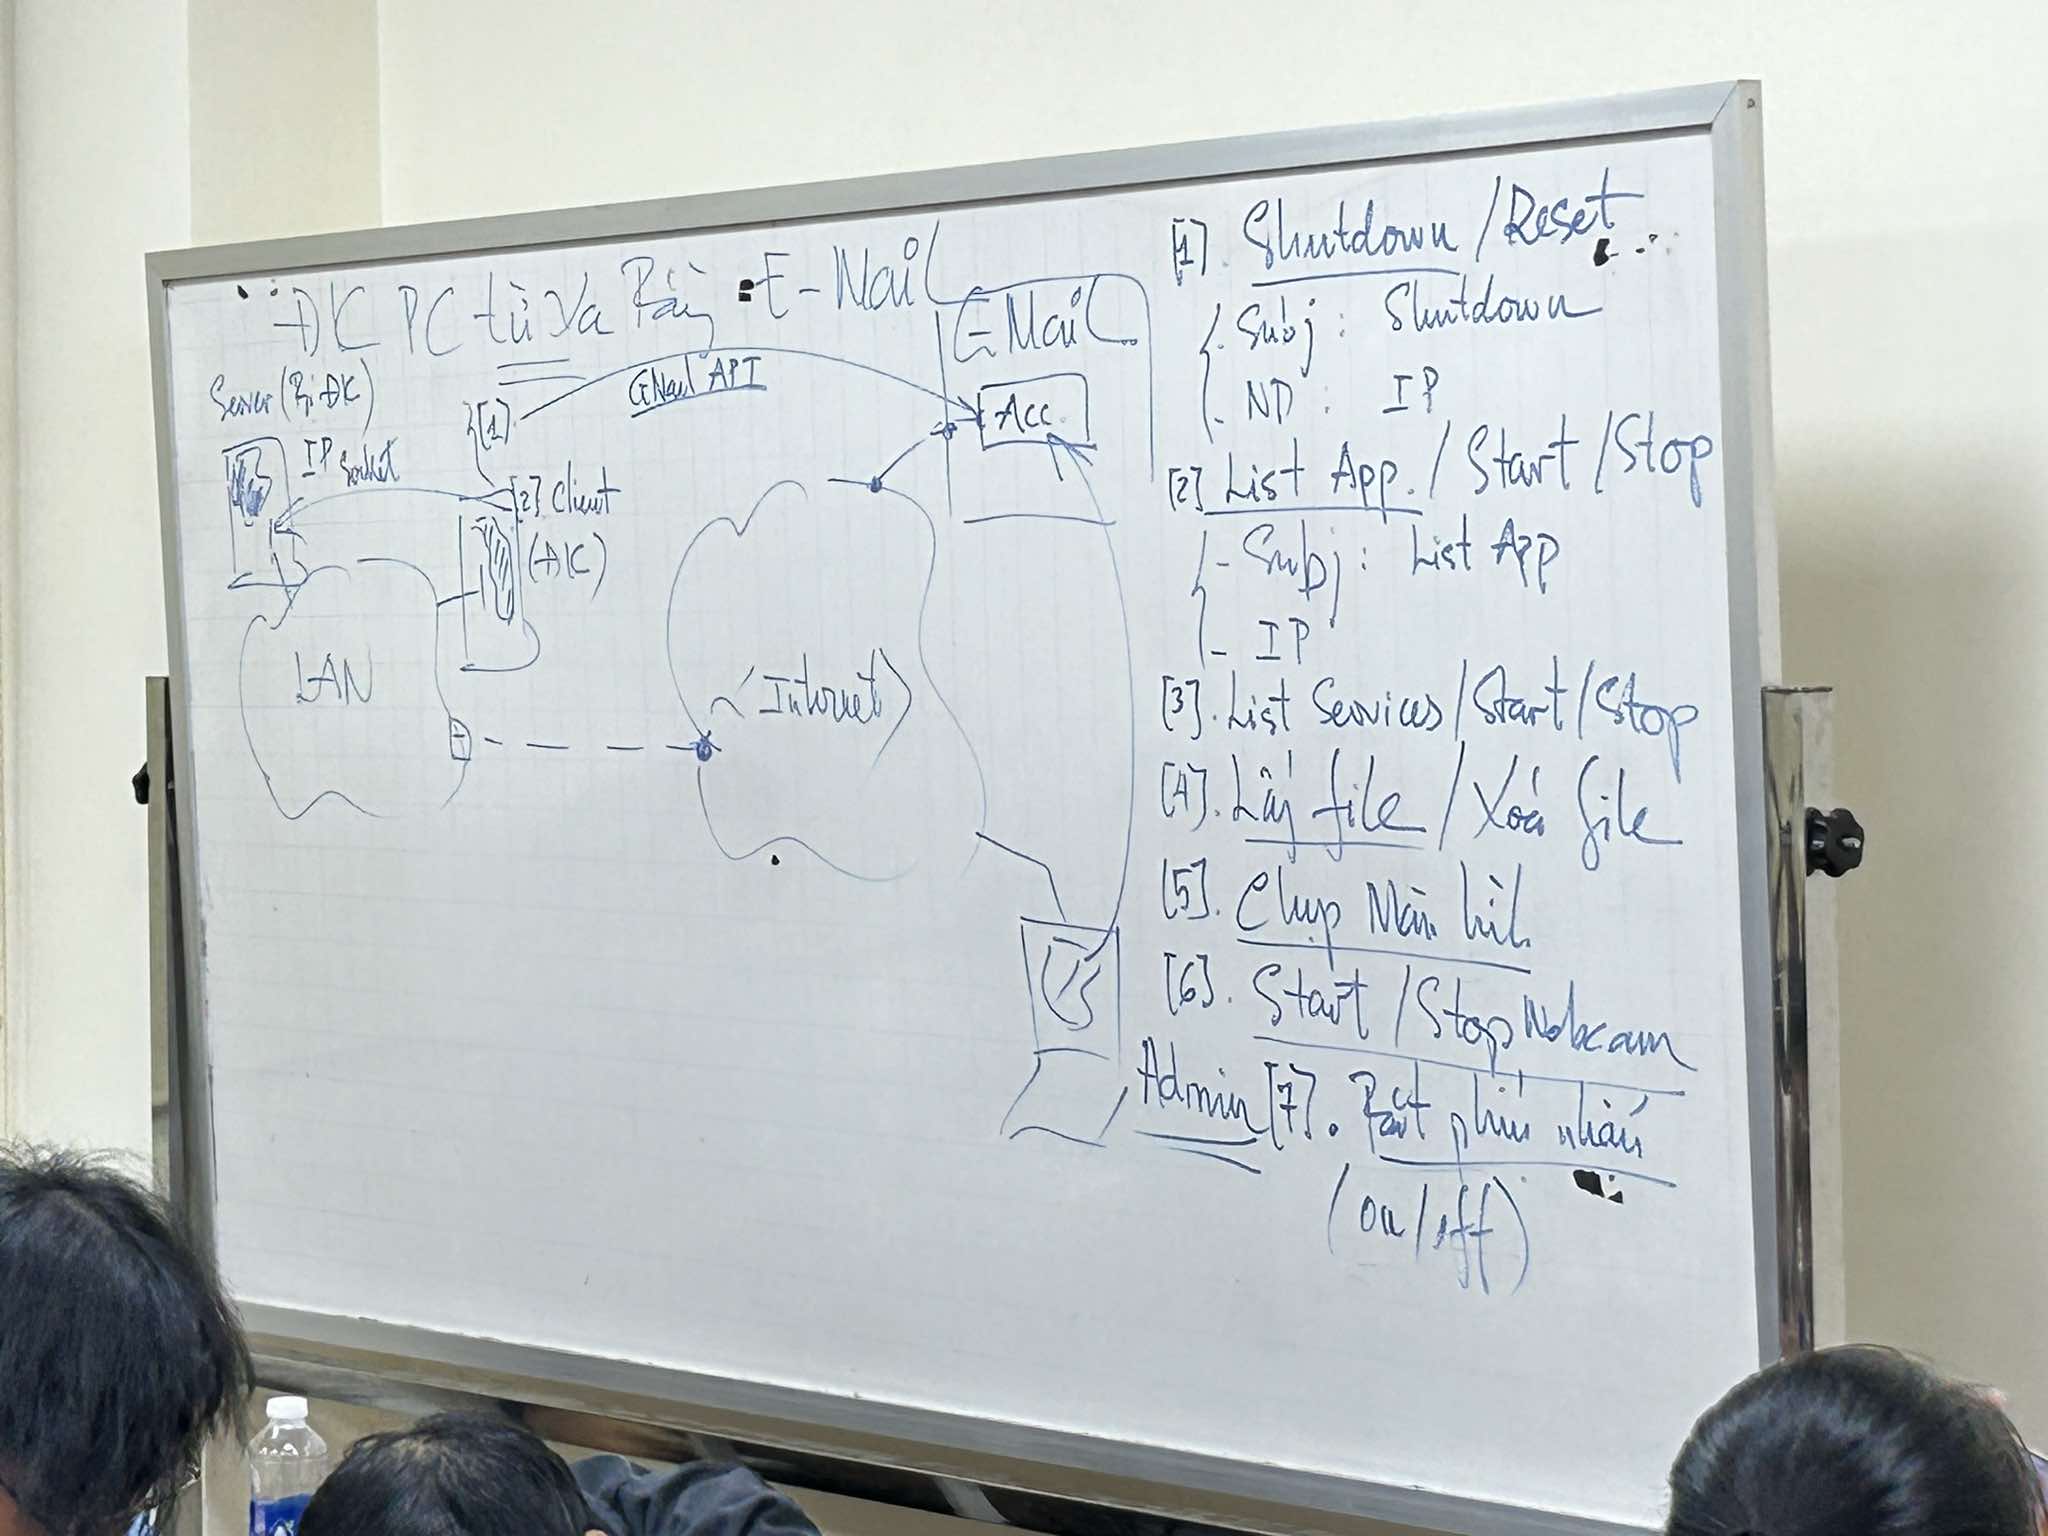 ĐK PC từ xa Bằng E-Mail
Server (Bị ĐK)
IP Socket
[1]
GMail API
[2] Client
(ĐK)
LAN
Internet
E-Mail
Acc.
Admin
[1]. Shutdown / Reset
- Subj : Shutdown
- ND : IP
[2] List App. / Start / Stop
- Subj : List App
- IP
[3]. List Services / Start / Stop
[4]. Lấy file / Xoá file
[5]. Chụp Màn hình
[6]. Start / Stop Webcam
[7]. Bắt phím nhấn
(on / off)